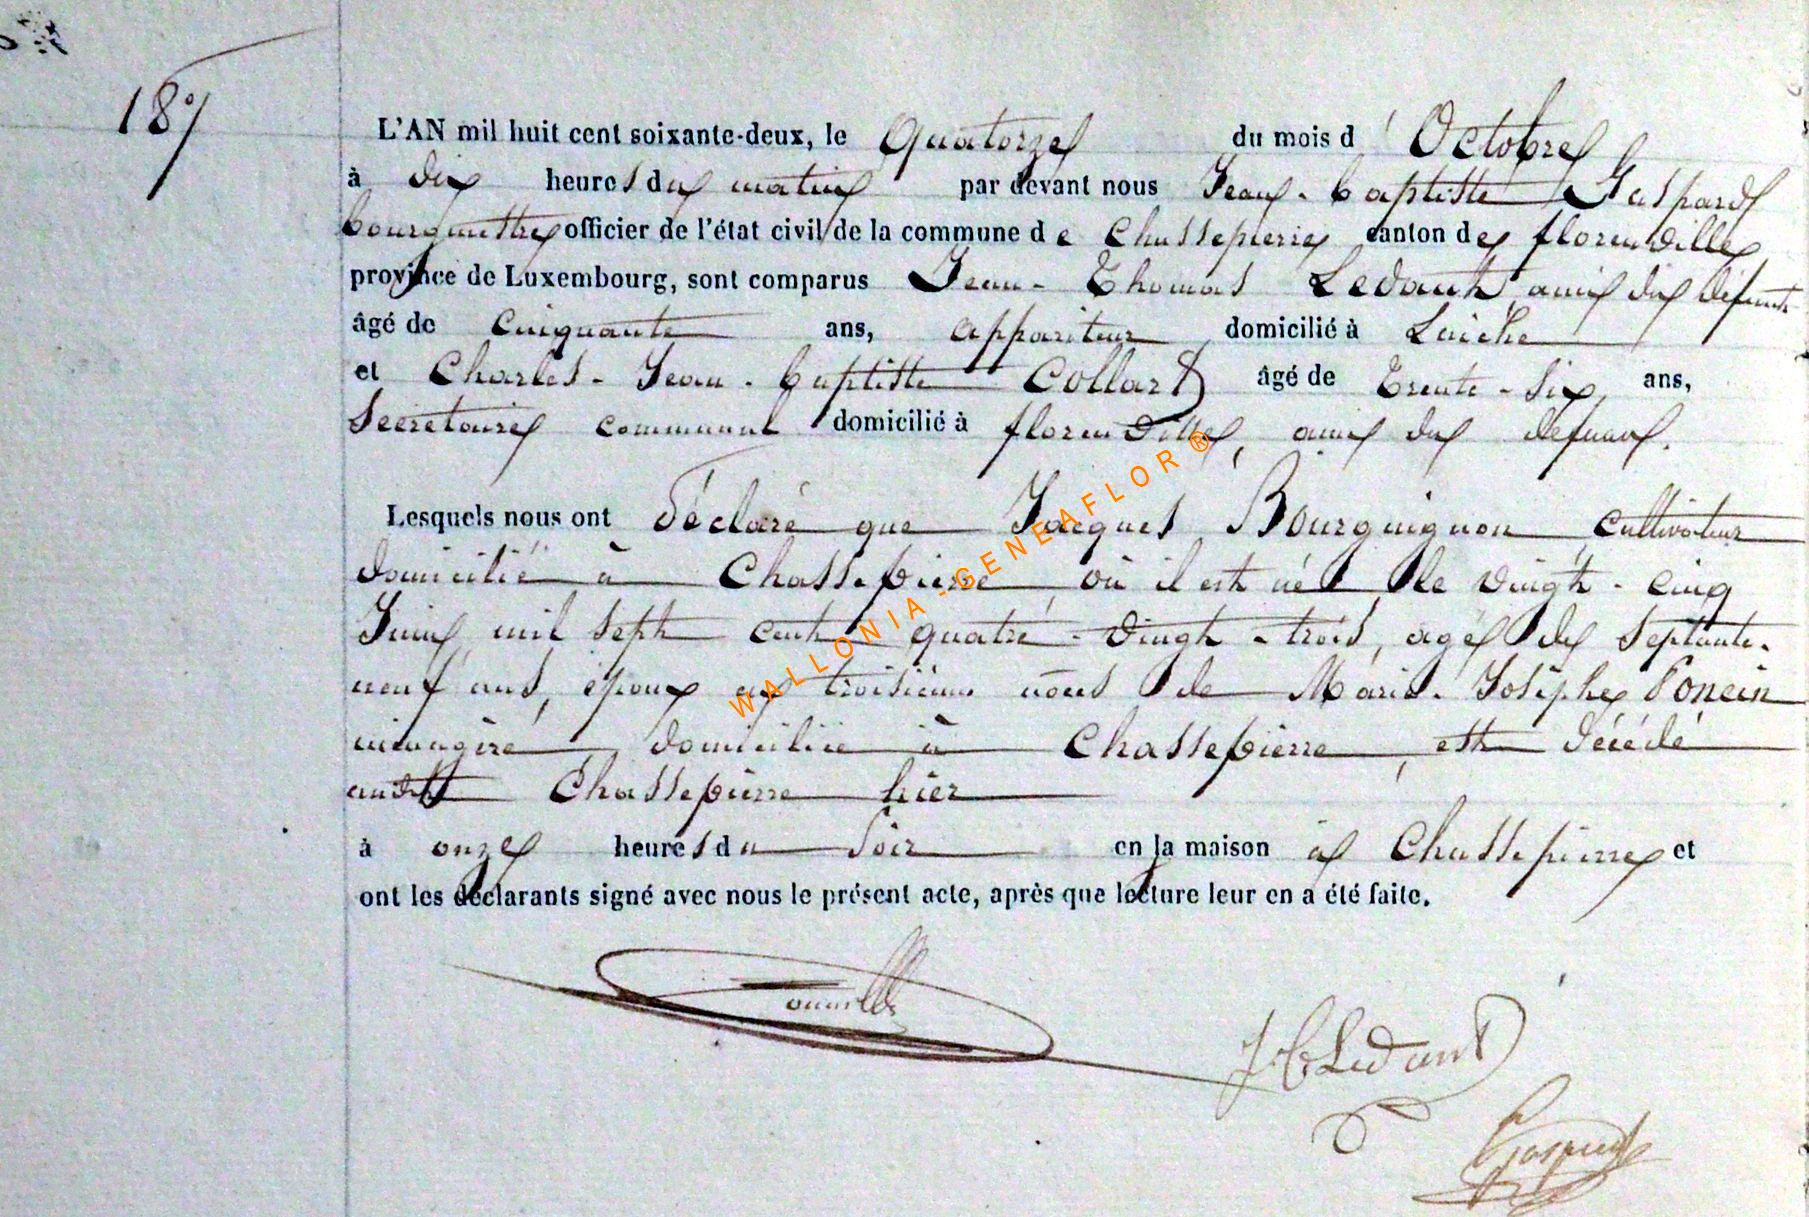 18°/
L'AN mil huit cent soixante-deux, le Quatorze du mois d'Octobre
à dix heures du matin par devant nous Jean-baptiste Gaspard
bourgmestre officier de l'état civil de la commune de Chassepierre canton de florenville
province de Luxembourg, sont comparus Jean-Thomas Ledant, ami du défunt
âgé de Cinquante ans, appariteur domicilié à Laiche
et Charles-Jean-baptiste Collard âgé de Trente-six ans,
Secretaire communal domicilié à florenville, ami du defunt.
Lesquels nous ont déclaré que Jacques Bourguignon, cultivateur
domicilié à Chassepierre, où il est né le vingt-cinq
Juin mil sept cent quatre-vingt-trois, agé de septante-
neuf ans, époux en troisième nôces de Marie-Josèphe Poncin
ménagère, domiciliée à Chassepierre, est décédé
audit Chassepierre hier
à onze heures du soir en la maison à Chassepierre et
ont les déclarants signé avec nous le présent acte, après que lecture leur en a été faite.
J. T. Ledant
Gaspard
WALLONIA-GENEAFLOR®